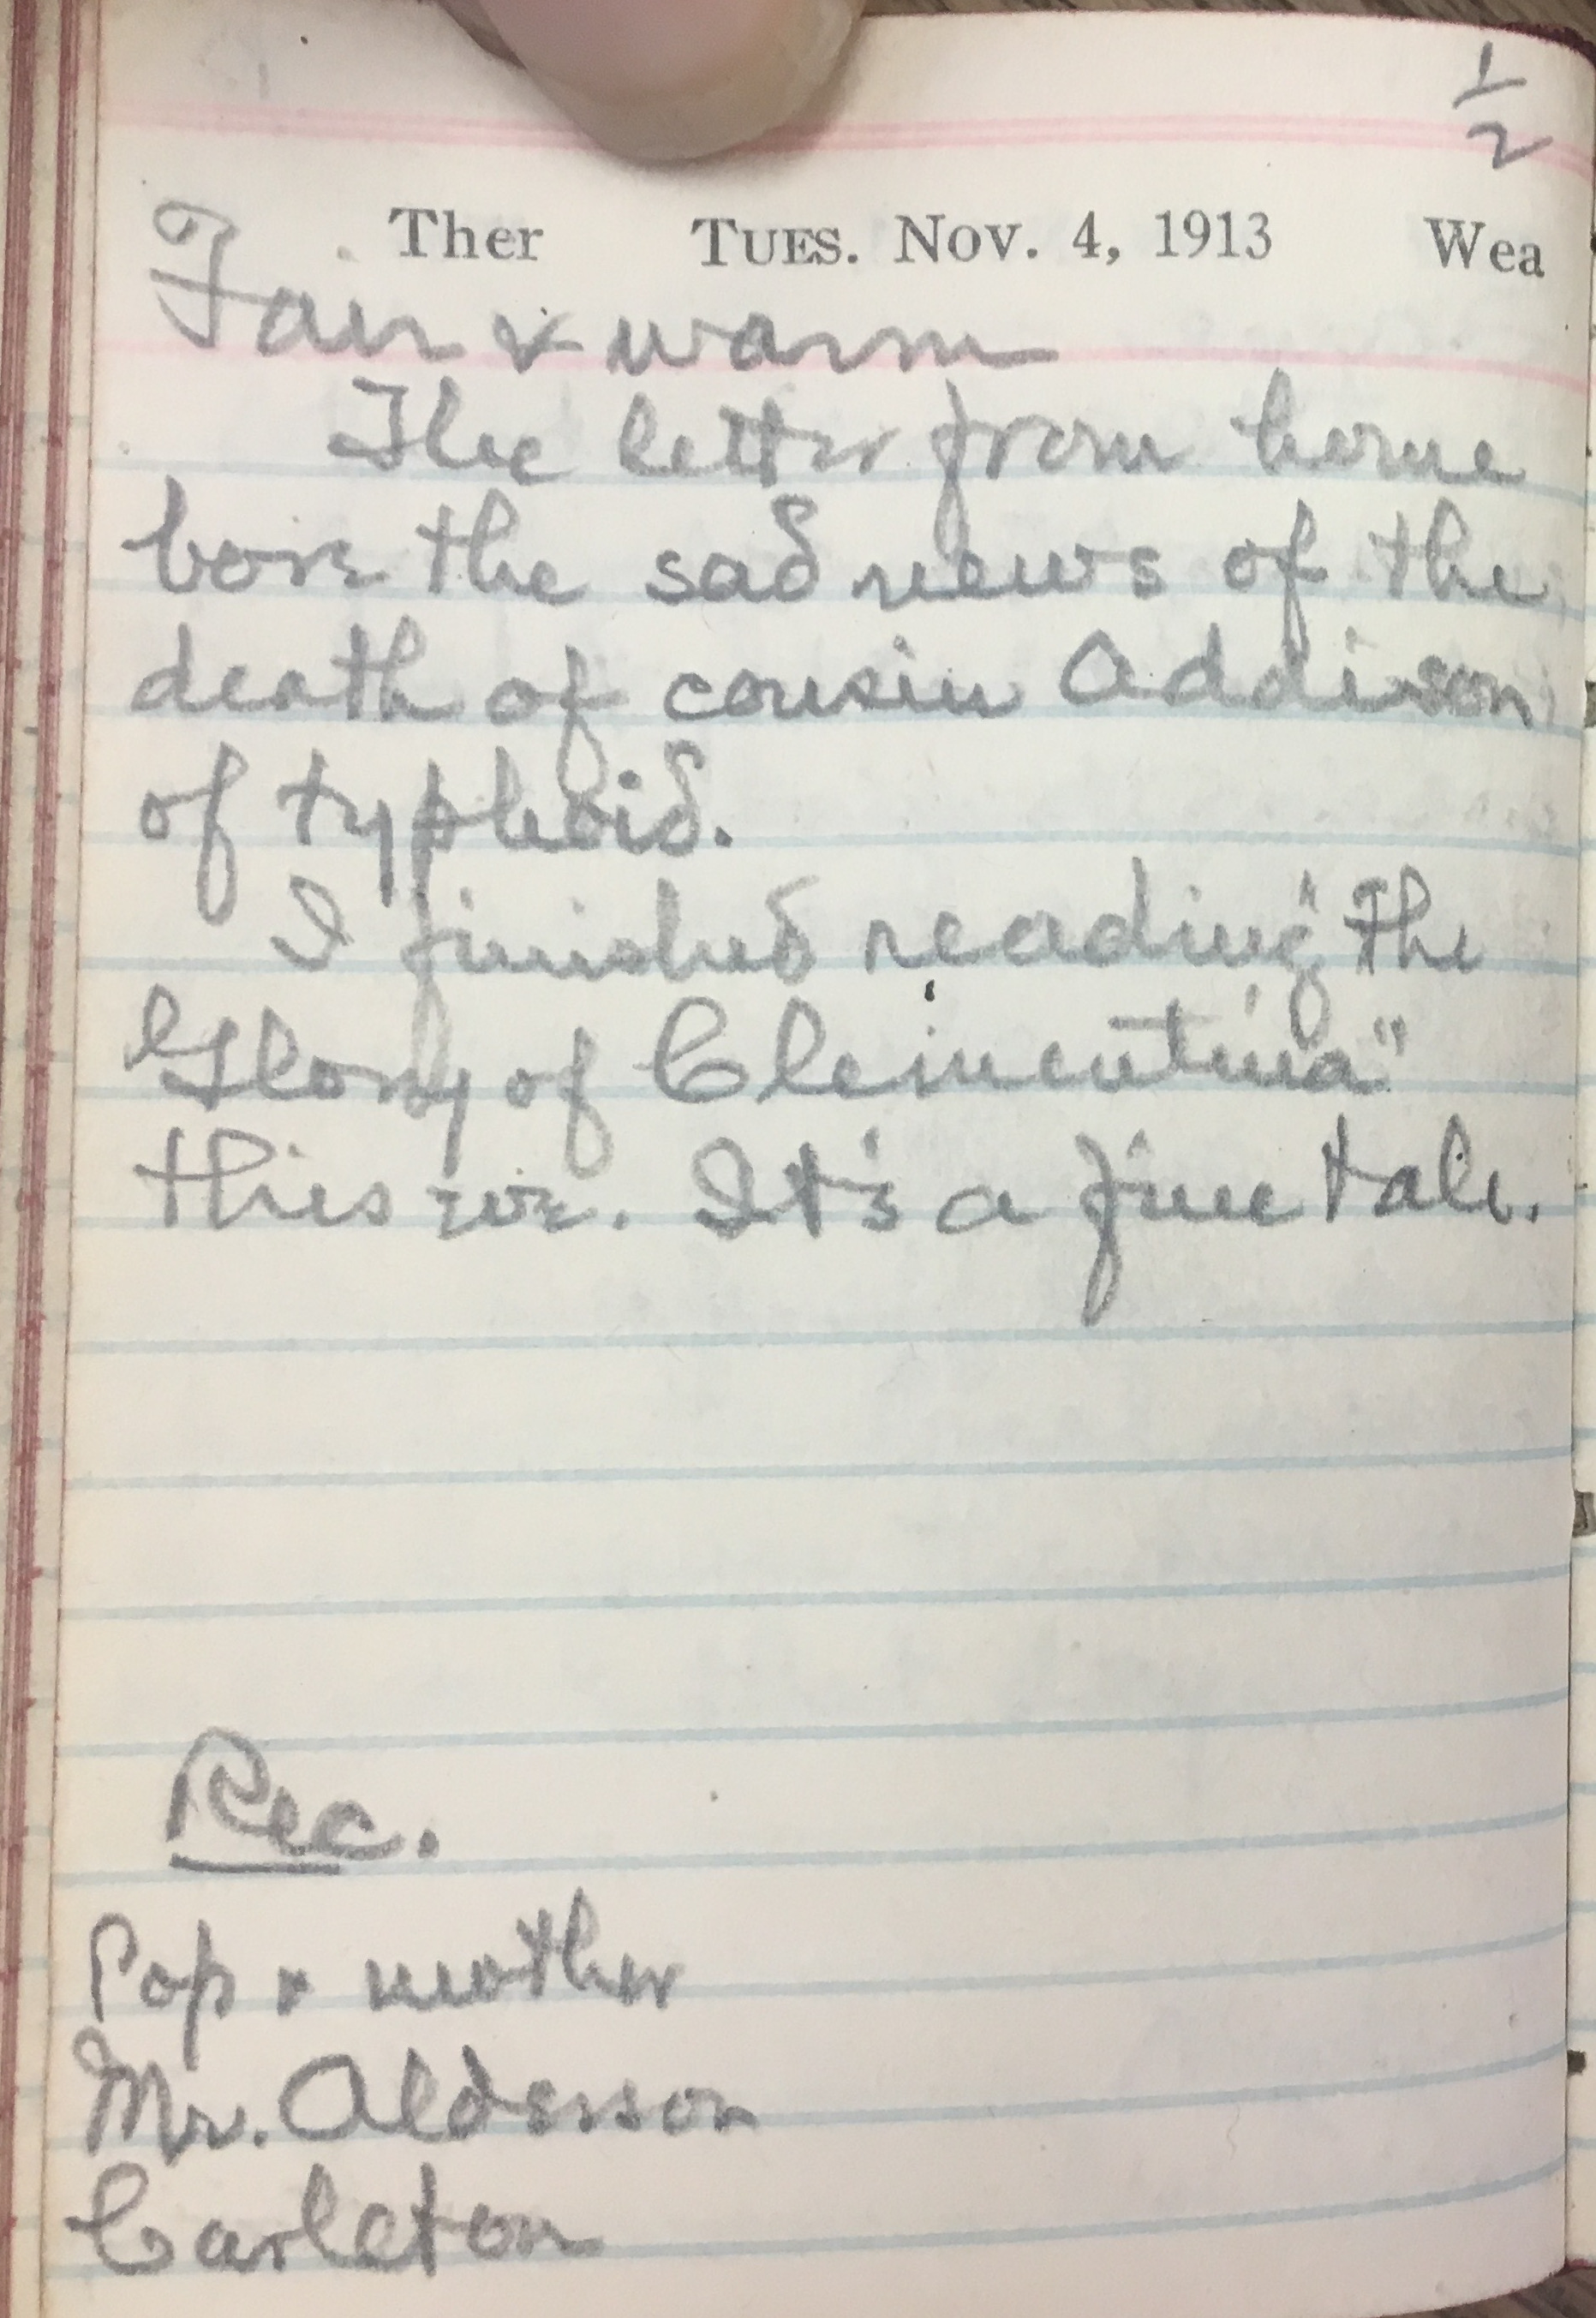 1/2
Ther TUES. Nov. 4, 1913 Wea
Fair & warm
The letter from home
bore the sad news of the
death of cousin Addison
of typhoid.
I finished reading "The
Glory of Clementina"
this eve. It's a fine tale.
Rec.
Pop & mother
Mr. Alderson
Carleton